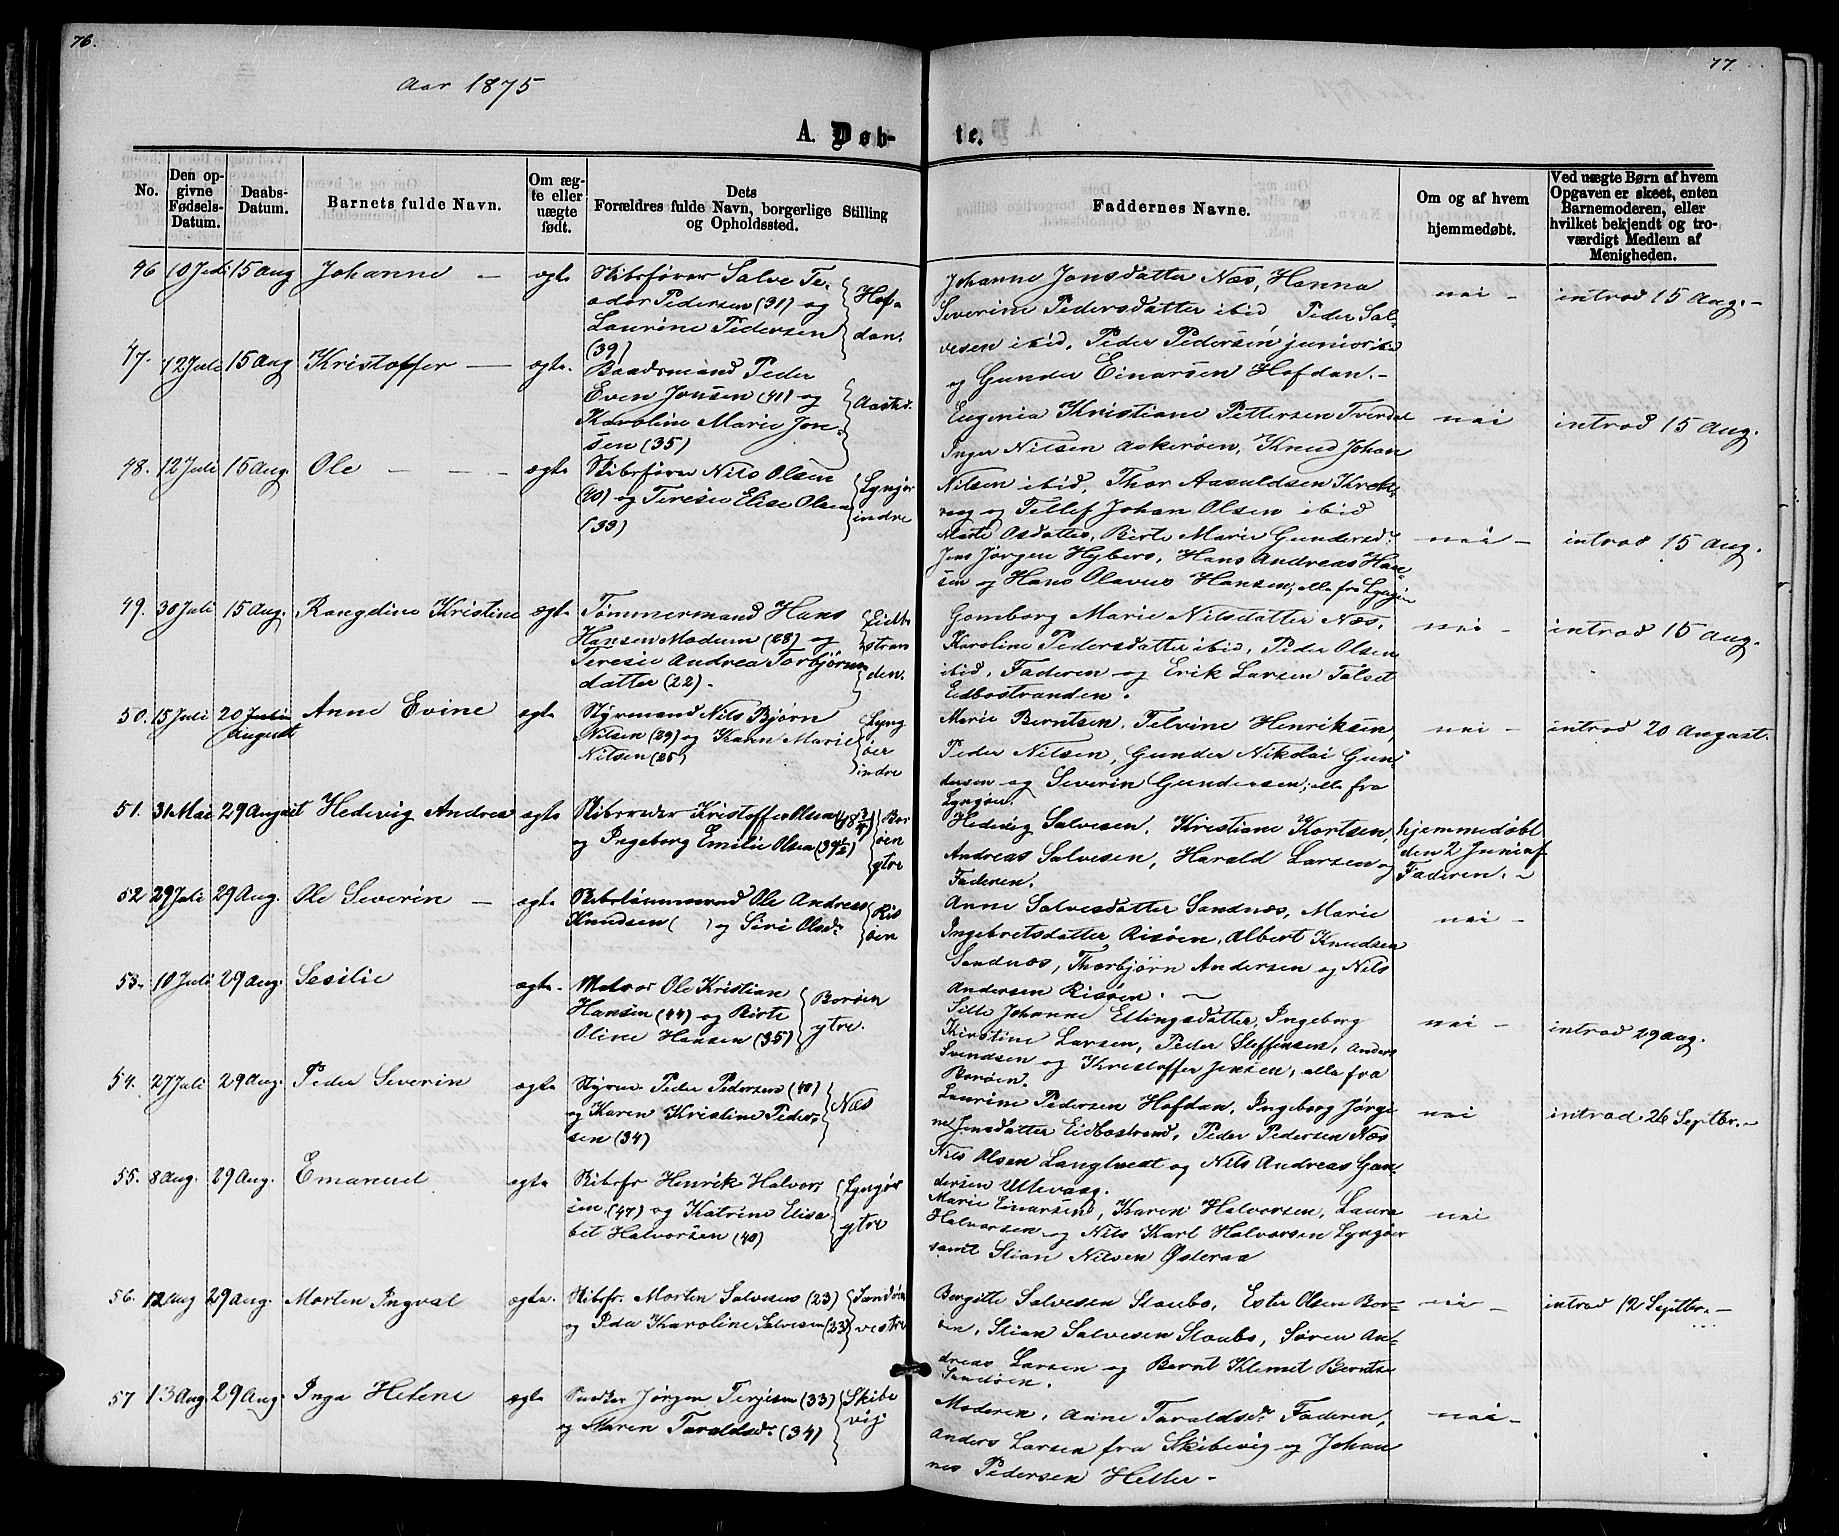 76.
Aar 1875
A. Døb-
No.
Den op-
givne
Fødsels-
Datum.
Daabs-
Datum.
Barnets fulde Navn.
Om æg-
te eller
uægte
født.
Dets
Forældres fulde Navn, borgerlige Stilling
og Opholdssted.
46 10 Juli 15 Aug Johanne — ægte Skibsfører Salve Te-
ador Pedersen (31) og
Laurine Pedersen
(39)
Hof-
dan.
47. 12 Juli 15 Aug Kristoffer — ægte. Baadsmand Peder
Even Jonsen (41) og
Karoline Marie Jon-
sen (35)
48. 12 Juli 15 Aug. Ole — — — ægte Skibsfører Nils Olsen
(40) og Teresie Elise Olsen
(33)
Lyngør
indre
49. 30 Juli 15 Aug. Rangdine Kristine ægte Tømmermand Hans
Hansen Modum (28) og
Teresie Andrea Torbjørns
datter (22).
Eidbo
stran
den.
50. 15 Juli 20 Juli
August
Anne Evine ægte Styrmand Nils Bjørn
Nilsen (29) og Karen Marie
Nilsen (25)
Lyng
øer
indre
51. 31 Mai 29 August Hedevig Andrea ægte Skibsreder Kristoffer Olsen
og Ingeborg Emilie Olsen
Bor
øen
ytre
52 29 Juli 29 Aug. Ole Severin — ægte Skibstømmermand Ole Andreas
Knudsen ( ) og Siri Olsdr
Ris
øen
53. 10 Juli 29 Aug. Sesilie ægte. Matros Ole Kristian
Hansen (44) og Birte
Oline Hansen (35)
Borøen
ytre.
54. 27 Juli 29 Aug. Peder Severin ægte Styrm. Peder Pedersen (40)
og Karen Kristine Peder-
sen (34)
Næs
55. 8 Aug. 29 Aug. Emanuel ægte Skibsfr Henrik Halvor
sen (47) og Katrine Elisa
bet Halvorsen (40)
Lyngør
ytre
56. 12 Aug 29 Aug. Morten Ingval ægte. Skibsfr. Morten Salvesen (23)
og Ida Karoline Salvesen (23)
Sandøen
vestre
57 13 Aug 29 Aug. Inga Helene ægte Snedker Jørgen Terjesen (33)
og Maren Taraldsdr (34)
Skibe
vig
77.
te.
Faddernes Navne.
Om og af hvem
hjemmedøbt.
Ved uægte Børn af hvem
Opgaven er skeet, enten
Barnemoderen, eller
hvilket bekjendt og tro-
værdigt Medlem af
Menigheden.
Johanne Jonsdatter Næs, Hanna
Severine Pedersdatter ibid, Peder Sal-
vesen ibid, Peder Pedersen junior ibid
og Gunder Einarsen Hofdan.
nei — introd 15 Aug. —
Eugenia Kristiane Pettersen Tverdal
Inger Nilsen Askerøen, Knud Johan
Nilsen ibid, Thor Aasuldsen
og Tellef Johan Olsen ibid
nei introd 15 Aug.
Marte Osdatter, Birte Marie Gundersdr
Jens Jørgen Hybers, Hans Andreas Han-
sen og Hans Olavus Hansen, alle fra Lyngør
nei — introd 15 Aug.
Gomborg Marie Nilsdatter Næs,
Karoline Pedersdatter ibid, Peder Olsen
ibid, Faderen og Erik Larsen
Eidbostranden.
nei — introd 15 Aug.
Marie Berntsen, Telvine Henriksen,
Peder Nilsen, Gunder Nikolai Gun-
dersen og Severin Gundersen, alle fra
Lyngøer.
nei — introd 20 August.
Hedevig Salvesen, Kristiane Kortsen,
Andreas Salvesen, Harald Larsen og
Faderen.
hjemmedøbt
den 2 Juni af
Faderen. —
Anne Salvesdatter Sandnæs, Marie
Ingebretsdatter Risøen, Albert Knudsen
Sandnæs, Thorbjørn Andersen og Nils
Andersen Risøen. —
nei —
Sille Johanne Ellingsdatter, Ingeborg
Kirstine Larsen, Peder Steffensen, Anders
Svendsen og Kristoffer Jensen, alle fra
Borøen.
nei — introd 29 Aug.
Laurine Pedersen Hofdan, Ingeborg Jørgi-
ne Jonsdatter Eidbostrand, Peder Pedersen Næs
Nils Olsen Langtvedt og Nils Andreas Gun-
dersen Utevaag.
nei introd 26 Septbr. —
Marie Einarsen, Karen Halvorsen, Laura
Halvorsen og Nils Karl Halvorsen Lyngør
samt Stian Nilsen Østeraa
nei
Bergitte Salvesen Staubo, Ester Olsen Bor-
øen, Stian Salvesen Staubo, Søren An-
dreas Larsen og Bernt Klemet Berntsen
Sandøen.
nei — introd 12 Septbr. —
Moderen, Anne Taraldsdr Faderen,
Anders Larsen fra Skibevig og Johan
nes Pedersen Heller —
nei —